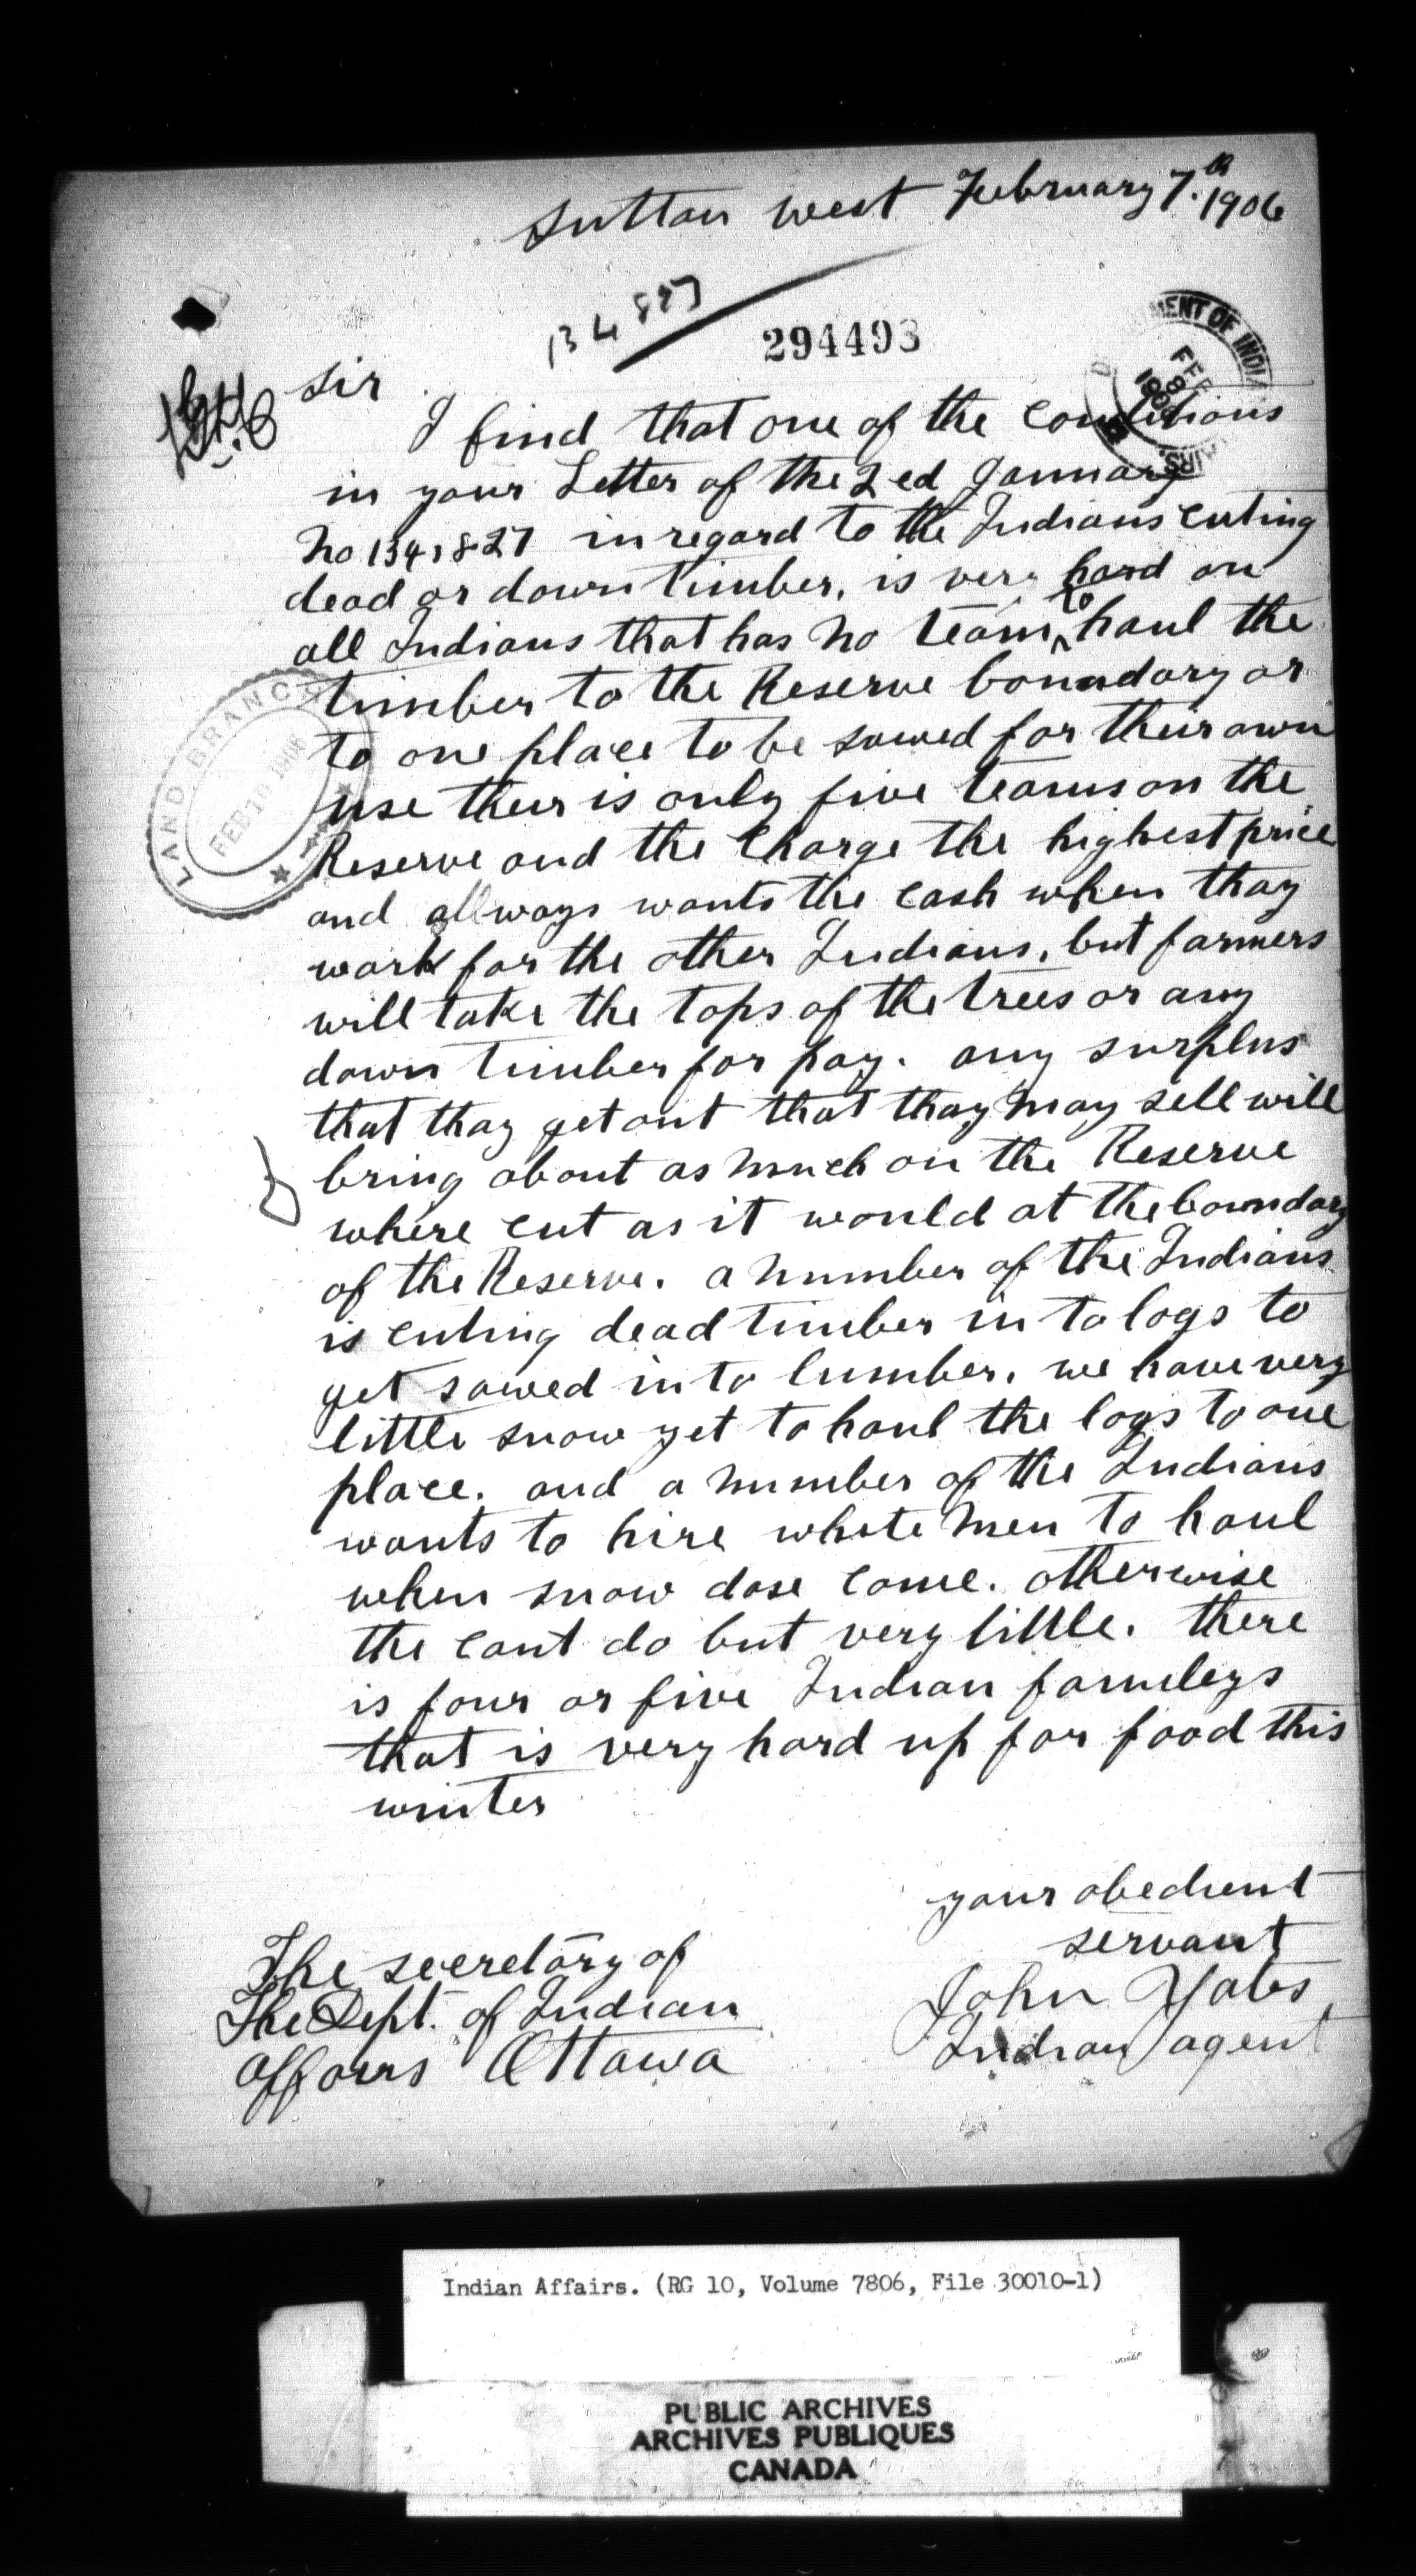 Sutton west February 7.th 1906
134827
294493
DEPARTMENT OF INDIAN AFFAIRS
FEB 8 1906
Sir
I find that one of the conditions
in your Letter of the 2ed January
No 134,827 in regard to the Indians cuting
dead or down timber, is very hard on
all Indians that has no team to haul the
timber to the Reserve boundary or
to one place to be sawed for their own
use their is only five teams on the
Reserve and the Charge the highest price
and allways wants the cash when thay
work for the other Indians, but farmers
will take the tops of the trees or any
down timber for pay. any surplus
that thay get out that thay may sell will
bring about as much on the Reserve
where cut as it would at the boundary
of the Reserve. a number of the Indians
is cuting dead timber in to logs to
get sawed in to lumber. we have very
little snow yet to haul the logs to one
place. and a number of the Indians
wants to hire white men to haul
when snow dose come. otherwise
the cant do but very little. there
is four or five Indian famileys
that is very hard up for food this
winter
LAND BRANCH
FEB 10 1906
your obedient
servant
John Yates
Indian agent
The secretary of
The Dept. of Indian
affairs Ottawa
Indian Affairs. (RG 10, Volume 7806, File 30010-1)
PUBLIC ARCHIVES
ARCHIVES PUBLIQUES
CANADA